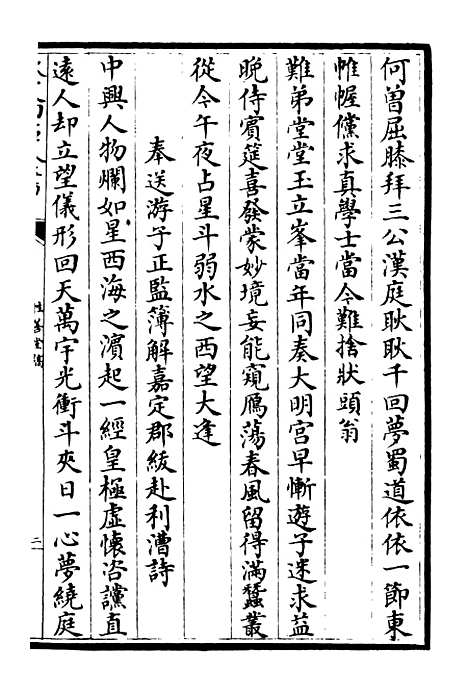 何曽屈膝拜三公漢庭耿耿千回夢蜀道依依一節東
帷幄儻求真學士當今難捨狀頭翁
難弟堂堂玉立峯當年同奏大明宮早慚遊子迷求益
晚侍賓筵喜發蒙妙境妄能窺鴈蕩春風留得滿蠶叢
從今午夜占星斗弱水之西望大逢
奉送游子正監簿解嘉定郡紱赴利漕詩
中興人物爛如星西海之濵起一經皇極虛懷咨讜直
逺人却立望儀形回天萬宇光衝斗夾日一心夢繞庭
性善堂稿